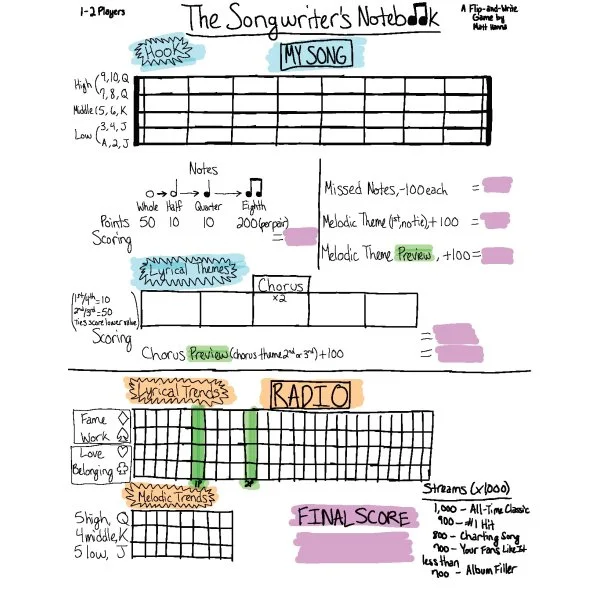 1-2 Players
The Songwriter's Notebook
A Flip-and-Write
Game by
Matt Hanna
Hook
MY SONG
High (9, 10, Q
7, 8, Q
Middle (5, 6, K
Low (3, 4, J
A, 2, J
Notes
Whole Half Quarter Eighth
Points 50 10 10 200 (per pair)
Scoring =
Missed Notes, -100 each =
Melodic Theme (1st, no tie), + 100 =
Melodic Theme Preview, +100 =
Lyrical Themes
Chorus
x2
1st/4th = 10
2nd/3rd = 50
Ties score lower value
Scoring =
Chorus Preview (chorus theme 2nd or 3rd) +100 =
Lyrical Trends
RADIO
Fame ♢
Work ♤
Love ♡
Belonging ♧
1P 2P
Melodic Trends
5 high, Q
4 middle, K
5 low, J
FINAL SCORE
Streams (x1000)
1,000 - All-Time Classic
900 - #1 Hit
800 - Charting Song
700 - Your Fans Like It
less than
700 - Album Filler